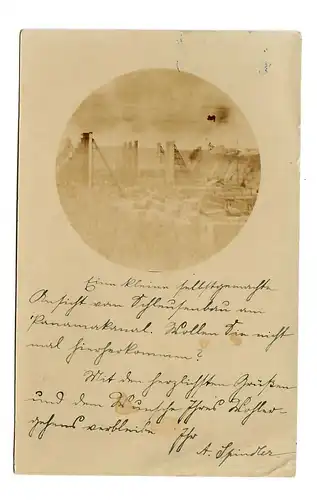 Eine kleine selbstgemachte
Ansicht vom Schleusenbau am
Panamakanal. Wollen Sie nicht
mal hierherkommen?
Mit den herzlichsten Grüßen
und dem Wunsche Ihres Wohler-
gehens verbleibe Ihr
A. Spindler